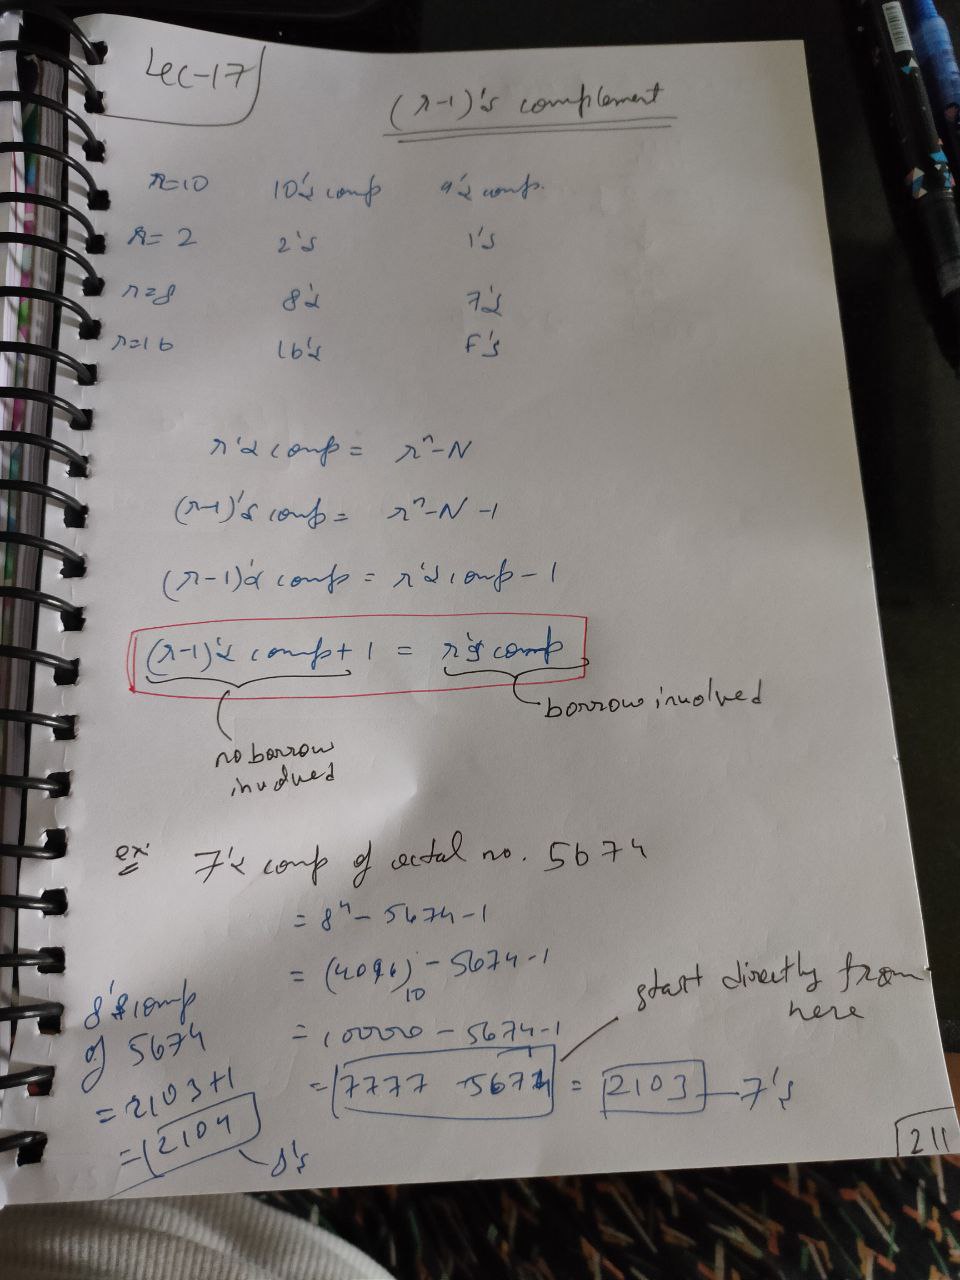 Lec-17
(r-1)'s complement
r=10 10's comp 9's comp.
r= 2 2's 1's
r=8 8's 7's
r=16 16's F's
r's comp = rⁿ-N
(r-1)'s comp = rⁿ-N -1
(r-1)'s comp = r's comp - 1
(r-1)'s comp + 1 = r's comp
borrow involved
no borrow
involved
ex: 7's comp of octal no. 5674
= 8⁴ - 5674 - 1
= (4096)₁₀ - 5674 - 1
= 10000 - 5674 - 1
start directly from
here
= 7777 - 5674 = 2103 - 7's
8's comp
of 5674
= 2103+1
= 2104
8's
211